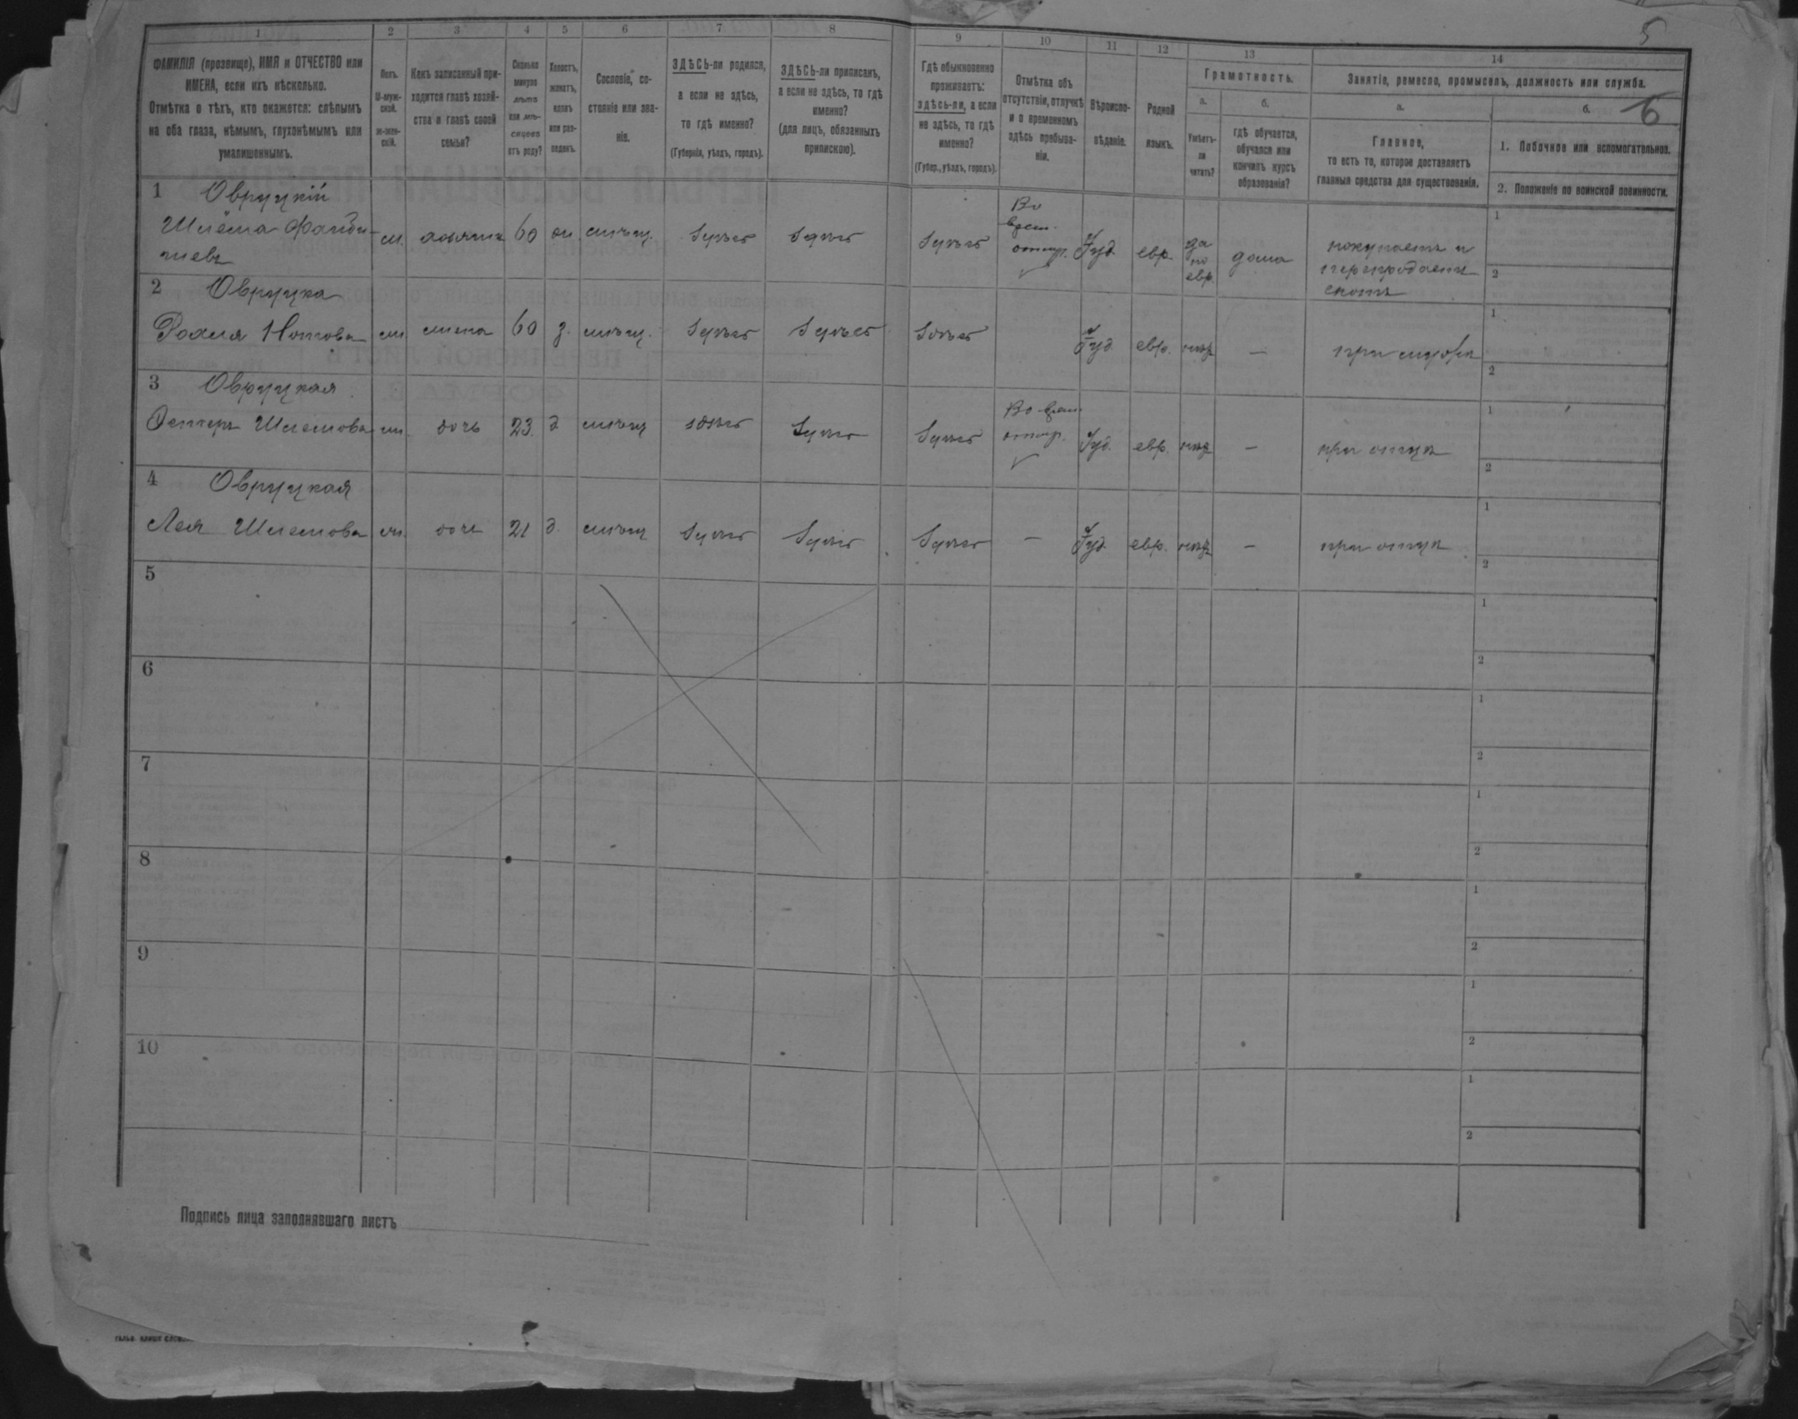 5
6
1 2 3 4 5 6 7 8 9 10 11 12 13 14
ФАМИЛІЯ (прозвище), ИМЯ и ОТЧЕСТВО или
ИМЕНА, если ихъ нѣсколько.
Отмѣтка о тѣхъ, кто окажется: слѣпымъ
на оба глаза, нѣмымъ, глухонѣмымъ или
умалишеннымъ.
Полъ.
М-муж-
ской.
ж-жен-
скій.
Какъ записанный при-
ходится главѣ хозяй-
ства и главѣ своей
семьи?
Сколько
минуло
лѣтъ
или мѣ-
сяцевъ
отъ роду?
Холостъ,
женатъ,
вдовъ
или раз-
веденъ.
Сословіе, со-
стояніе или зва-
ніе.
ЗДѢСЬ-ли родился,
а если не здѣсь,
то гдѣ именно?
(Губернія, уѣздъ, городъ).
ЗДѢСЬ-ли приписанъ,
а если не здѣсь, то гдѣ
именно?
(для лицъ, обязанныхъ
припискою).
Гдѣ обыкновенно
проживаетъ:
ЗДѢСЬ-ЛИ, а если
не здѣсь, то гдѣ
именно?
(Губер., уѣздъ, городъ).
Отмѣтка объ
отсутствіи, отлучкѣ
и о временномъ
здѣсь пребыва-
ніи.
Вѣроиспо-
вѣданіе.
Родной
языкъ.
Грамотность.
а.
Умѣетъ-
ли
читать?
б.
гдѣ обучается,
обучался или
кончилъ курсъ
образованія?
Занятіе, ремесло, промыселъ, должность или служба.
а.
Главное,
то есть то, которое доставляетъ
главныя средства для существованія.
б.
1. Побочное или вспомогательное.
2. Положеніе по воинской повинности.
1 Овруцкій
Шлёма
м. хозяинъ 60 ж. мѣщ. здѣсь здѣсь здѣсь
Во
врем.
отлуч.
Іуд. евр. да
по
евр.
дома
покупаетъ и
перепродаетъ
скотъ
1
2
2 Овруцка
Рохля
жена 60 з. мѣщ. здѣсь здѣсь здѣсь Іуд. евр. — при мужѣ
1
2
3 Овруцкая
Эстеръ Шлемова дочь 23 д мѣщ здѣсь здѣсь здѣсь
Іуд. евр. — при отцѣ
1
2
4 Овруцкая
Лея Шлемова дочь 21 д. мѣщ здѣсь здѣсь здѣсь — Іуд. евр. — при отцѣ
1
2
5
1
2
6
1
2
7
1
2
8
1
2
9
1
2
10
1
2
Подпись лица заполнявшаго листъ